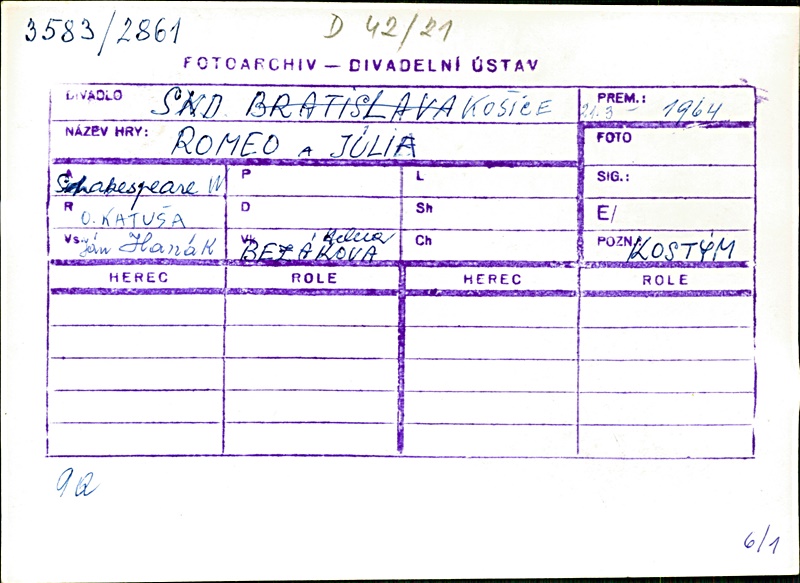 3583/2861
D 42/21
FOTOARCHIV — DIVADELNÍ ÚSTAV
DIVADLO SND BRATISLAVA KOŠICE PREM.: 21.3 1964
NÁZEV HRY: ROMEO A JÚLIA FOTO
A Schakespeare W P L SIG.:
R O. KATUŠA D Sh E/
Vs. Ján Hanák Vk BEZÁKOVA Ch POZN. KOSTÝM
HEREC ROLE HEREC ROLE
6/1